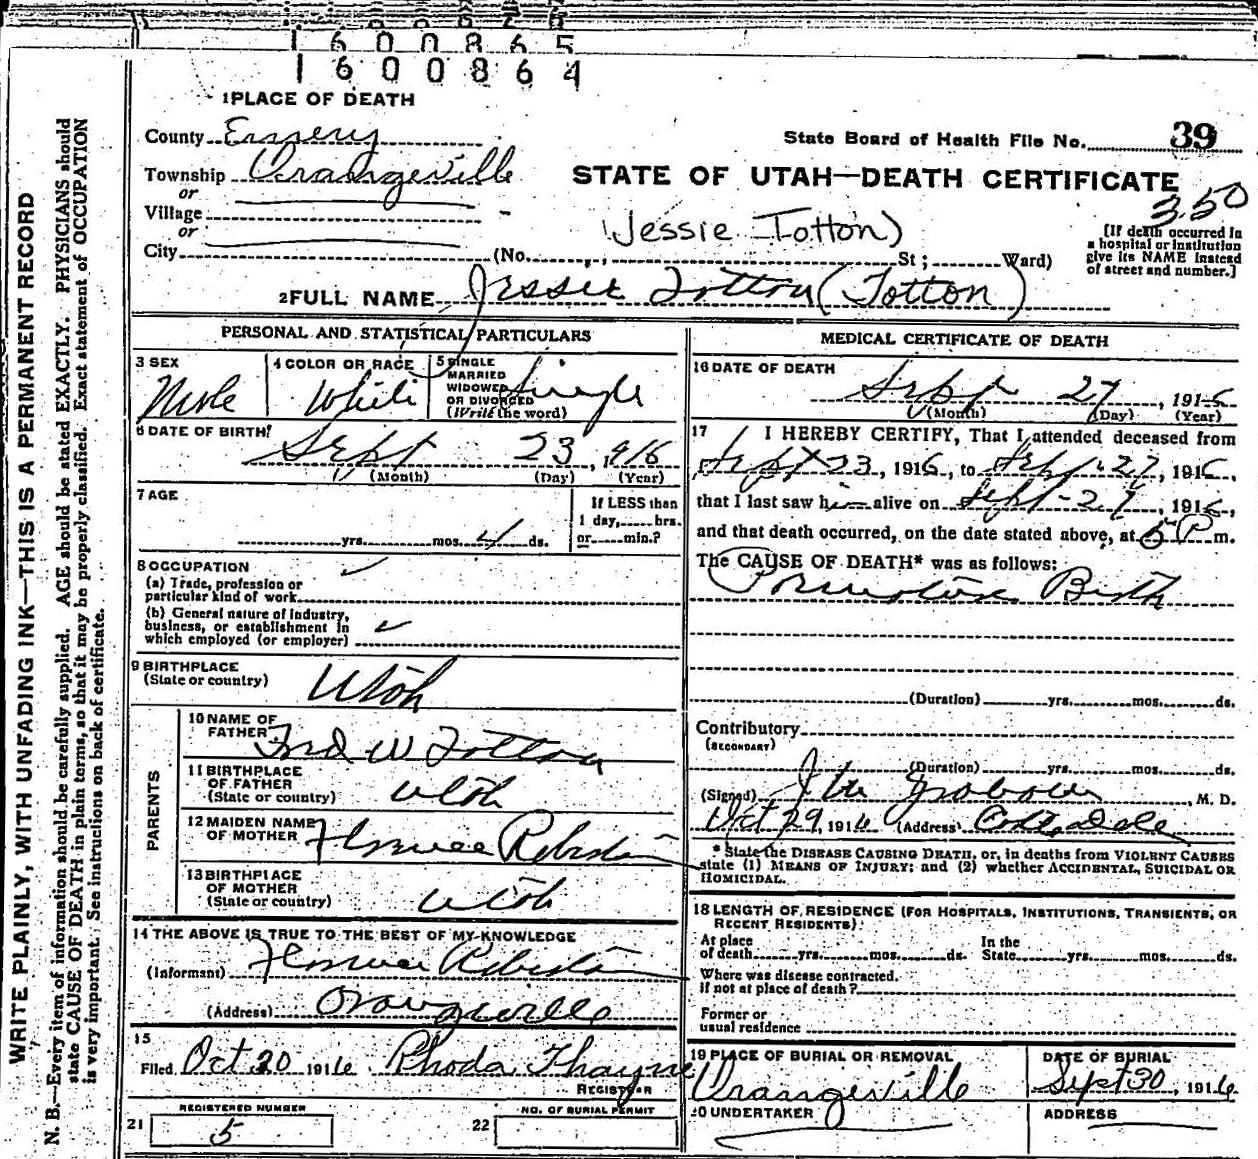 1600865
1600864
1 PLACE OF DEATH
County Emery
State Board of Health File No. 39
Township Orangeville
STATE OF UTAH—DEATH CERTIFICATE
350
or
Village
or
City
(Jessie Totton)
(No. St; Ward)
[If death occurred in a hospital or institution give its NAME instead of street and number.]
2 FULL NAME Jessie Totton (Totton)
PERSONAL AND STATISTICAL PARTICULARS
3 SEX Male
4 COLOR OR RACE White
5 SINGLE MARRIED WIDOWED OR DIVORCED (Write the word) Single
6 DATE OF BIRTH
Sept 23, 916
(Month) (Day) (Year)
7 AGE
yrs. mos. 4 ds.
If LESS than 1 day, hrs. or min.?
8 OCCUPATION
(a) Trade, profession or particular kind of work
(b) General nature of industry, business, or establishment in which employed (or employer)
9 BIRTHPLACE (State or country) Utah
PARENTS
10 NAME OF FATHER W Totton
11 BIRTHPLACE OF FATHER (State or country) Utah
12 MAIDEN NAME OF MOTHER Florence
13 BIRTHPLACE OF MOTHER (State or country) Utah
14 THE ABOVE IS TRUE TO THE BEST OF MY KNOWLEDGE
(Informant) Florence
(Address) Orangeville
15
Filed Oct 20 1916 Rhoda Thayne
REGISTRAR
21 REGISTERED NUMBER 5
22 NO. OF BURIAL PERMIT
MEDICAL CERTIFICATE OF DEATH
16 DATE OF DEATH
Sept 27, 1916
(Month) (Day) (Year)
17 I HEREBY CERTIFY, That I attended deceased from
Sept 23, 1916, to Sept 27, 1916,
that I last saw him alive on Sept 27, 1916,
and that death occurred, on the date stated above, at 5 P m.
The CAUSE OF DEATH* was as follows:
Birth
(Duration) yrs. mos. ds.
Contributory
(SECONDARY)
(Duration) yrs. mos. ds.
(Signed) M. D.
Oct 29, 1916 (Address)
*State the DISEASE CAUSING DEATH, or, in deaths from VIOLENT CAUSES
state (1) MEANS OF INJURY; and (2) whether ACCIDENTAL, SUICIDAL OR
HOMICIDAL.
18 LENGTH OF RESIDENCE (FOR HOSPITALS, INSTITUTIONS, TRANSIENTS, OR
RECENT RESIDENTS)
At place of death yrs. mos. ds. In the State yrs. mos. ds.
Where was disease contracted.
if not at place of death?
Former or
usual residence
19 PLACE OF BURIAL OR REMOVAL
Orangeville
DATE OF BURIAL
Sept 30, 1916
20 UNDERTAKER
ADDRESS
WRITE PLAINLY, WITH UNFADING INK—THIS IS A PERMANENT RECORD
N. B.—Every item of information should be carefully supplied. AGE should be stated EXACTLY. PHYSICIANS should
state CAUSE OF DEATH in plain terms, so that it may be properly classified. Exact statement of OCCUPATION
is very important. See instructions on back of certificate.